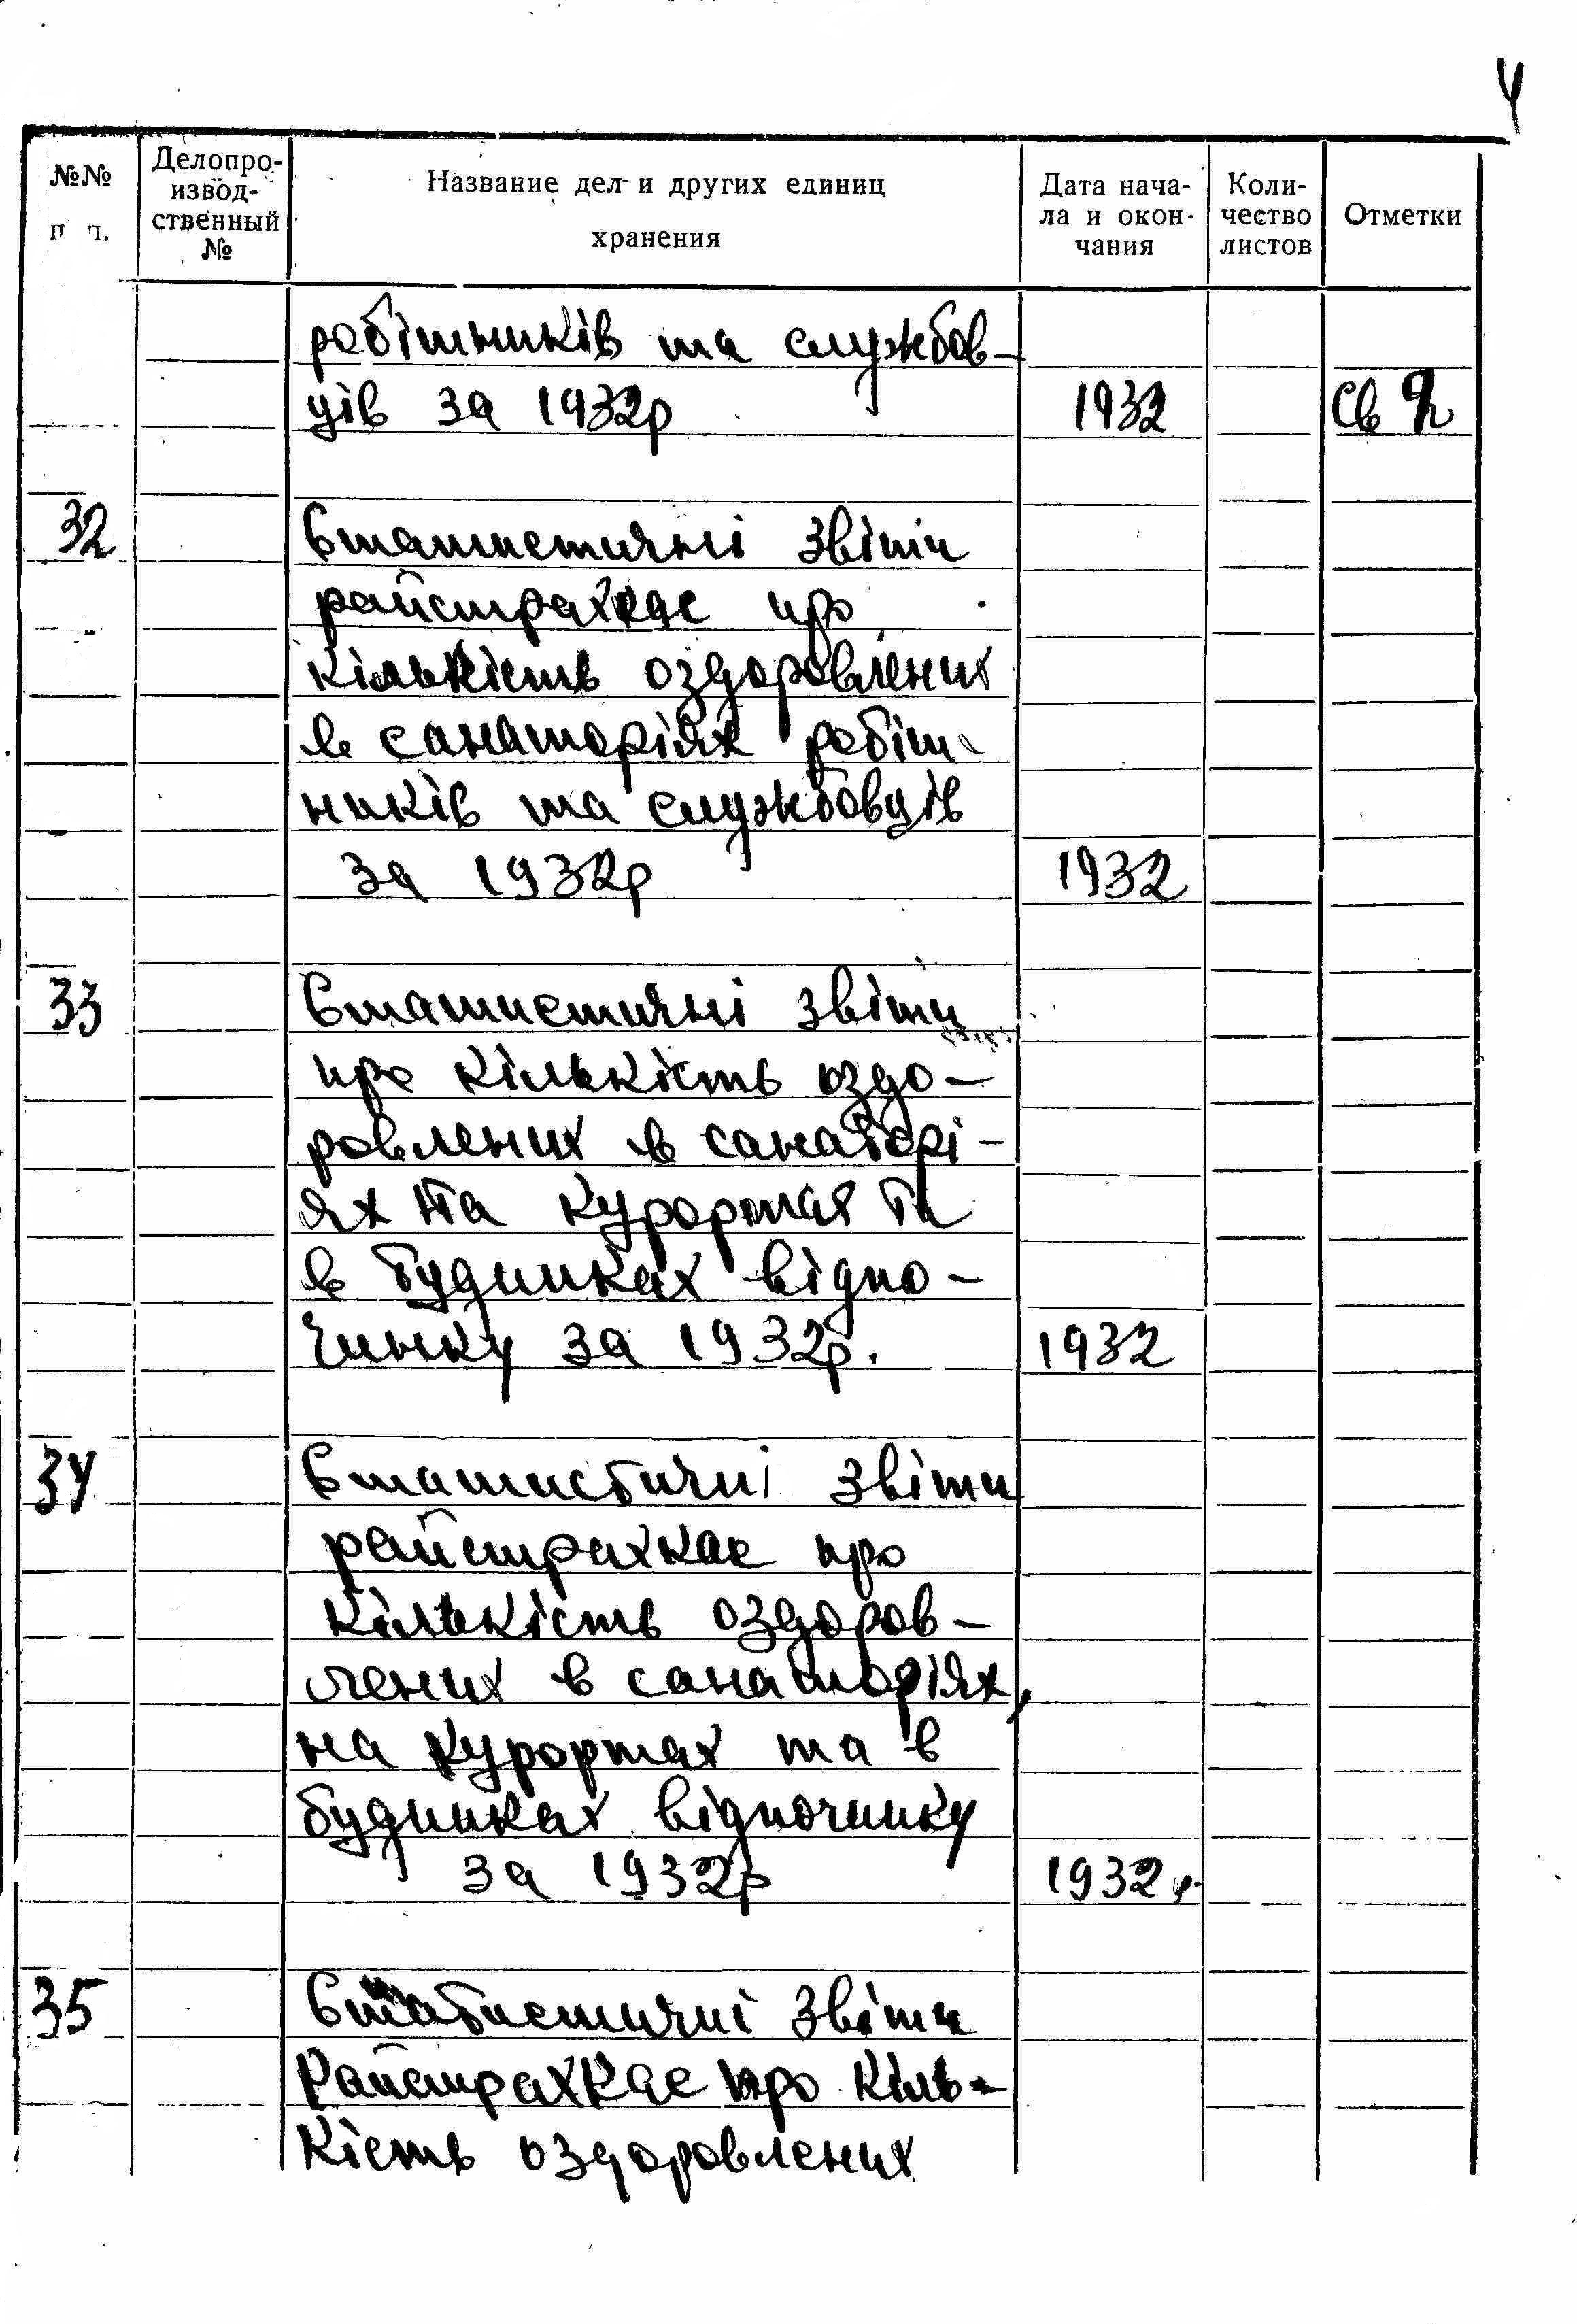 4
№№ п п.
Делопро-
извод-
ственный
№
Название дел и других единиц
хранения
Дата нача-
ла и окон-
чания
Коли-
чество
листов
Отметки
робітників та службов-
ців за 1932р 1932 Св
32 Статистичні звіти
райстрахкас про
кількість оздоровлених
в санаторіях робіт-
ників та службовців
за 1932р 1932
33 Статистичні звіти
про кількість оздо-
ровлених в санаторі-
ях на курортах та
в будинках відпо-
чинку за 1932р. 1932
34 Статистичні звіти
райстрахкас про
кількість оздоров-
лених в санаторіях,
на курортах та в
будинках відпочинку
за 1932р 1932р.
35 Статистичні звіти
Райстрахкас про кіль-
кість оздоровлених